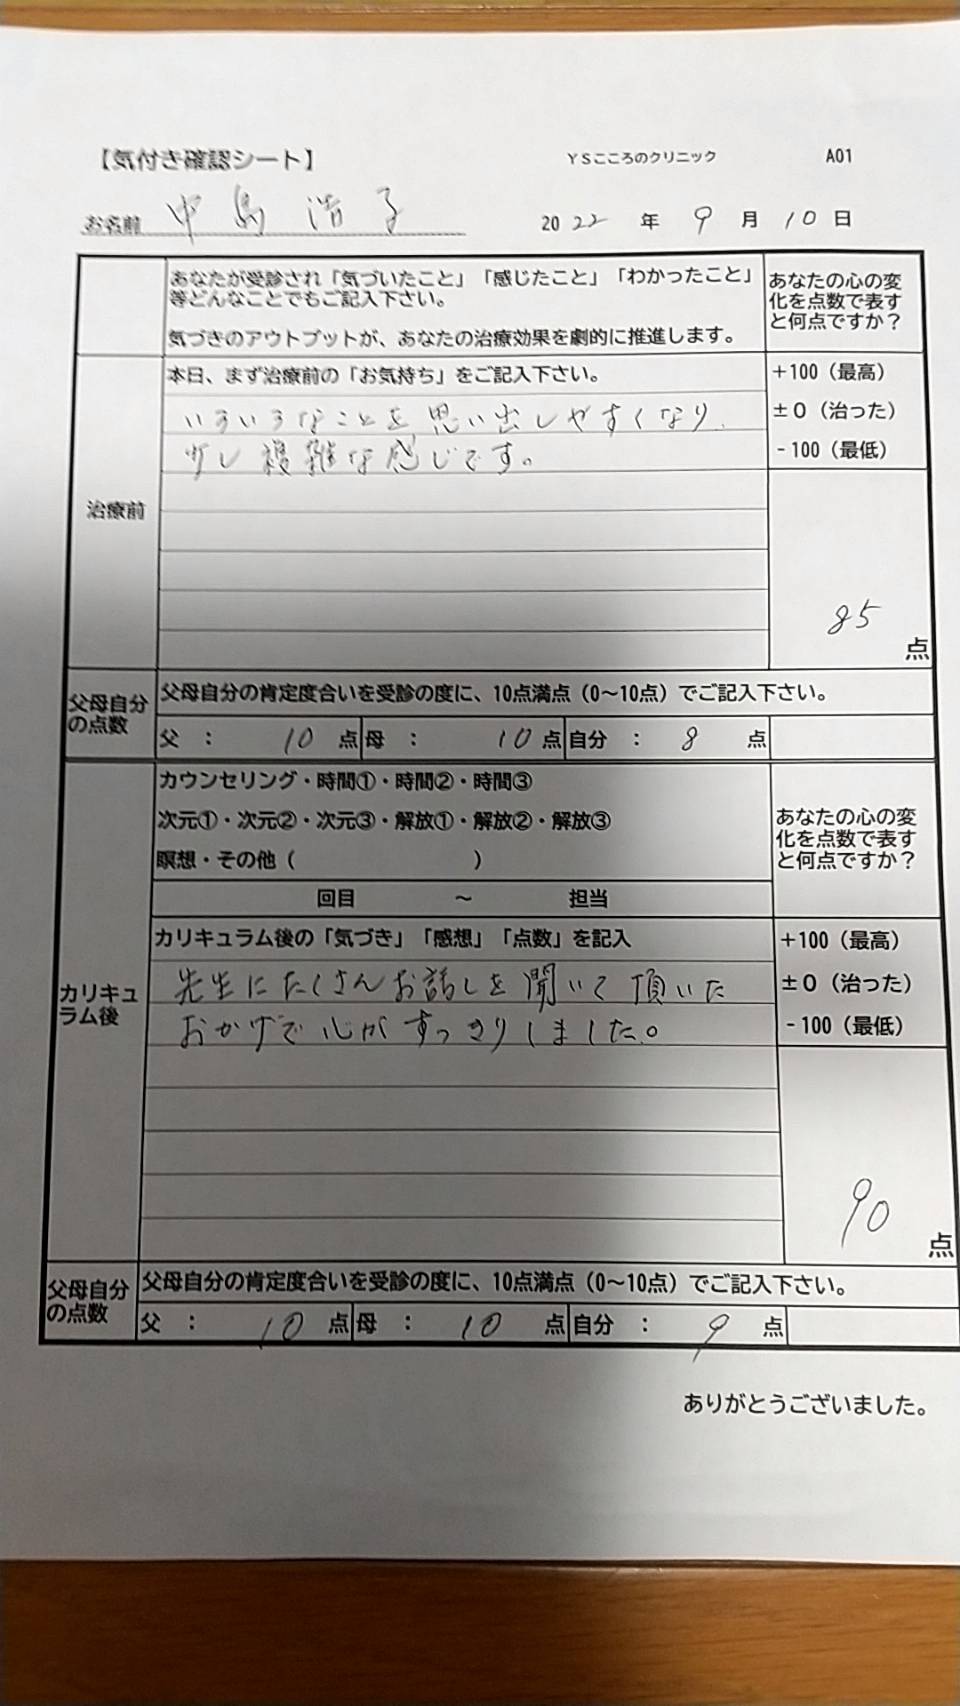 【気付き確認シート】 YSこころのクリニック A01
お名前 中島浩子 2022年9月10日
あなたが受診され「気づいたこと」「感じたこと」「わかったこと」
等どんなことでもご記入下さい。
気づきのアウトプットが、あなたの治療効果を劇的に推進します。
あなたの心の変
化を点数で表す
と何点ですか？
治療前
本日、まず治療前の「お気持ち」をご記入下さい。
いろいろなことを思い出しやすくなり、
少し複雑な感じです。
+100（最高）
±0（治った）
-100（最低）
85点
父母自分
の点数
父母自分の肯定度合いを受診の度に、10点満点（0～10点）でご記入下さい。
父 ： 10点 母 ： 10点 自分 ： 8点
カリキュ
ラム後
カウンセリング・時間①・時間②・時間③
次元①・次元②・次元③・解放①・解放②・解放③
瞑想・その他（ ）
回目 ～ 担当
あなたの心の変
化を点数で表す
と何点ですか？
カリキュラム後の「気づき」「感想」「点数」を記入
先生にたくさんお話しを聞いて頂いた
おかげで心がすっきりしました。
+100（最高）
±0（治った）
-100（最低）
90点
父母自分
の点数
父母自分の肯定度合いを受診の度に、10点満点（0～10点）でご記入下さい。
父 ： 10点 母 ： 10点 自分 ： 9点
ありがとうございました。